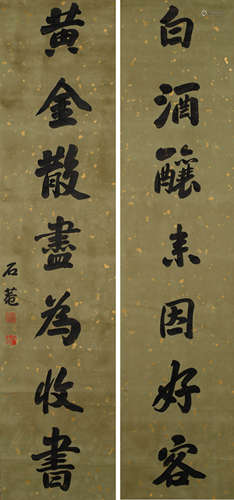 白酒釀来因好客
黃金散盡為收書
石菴